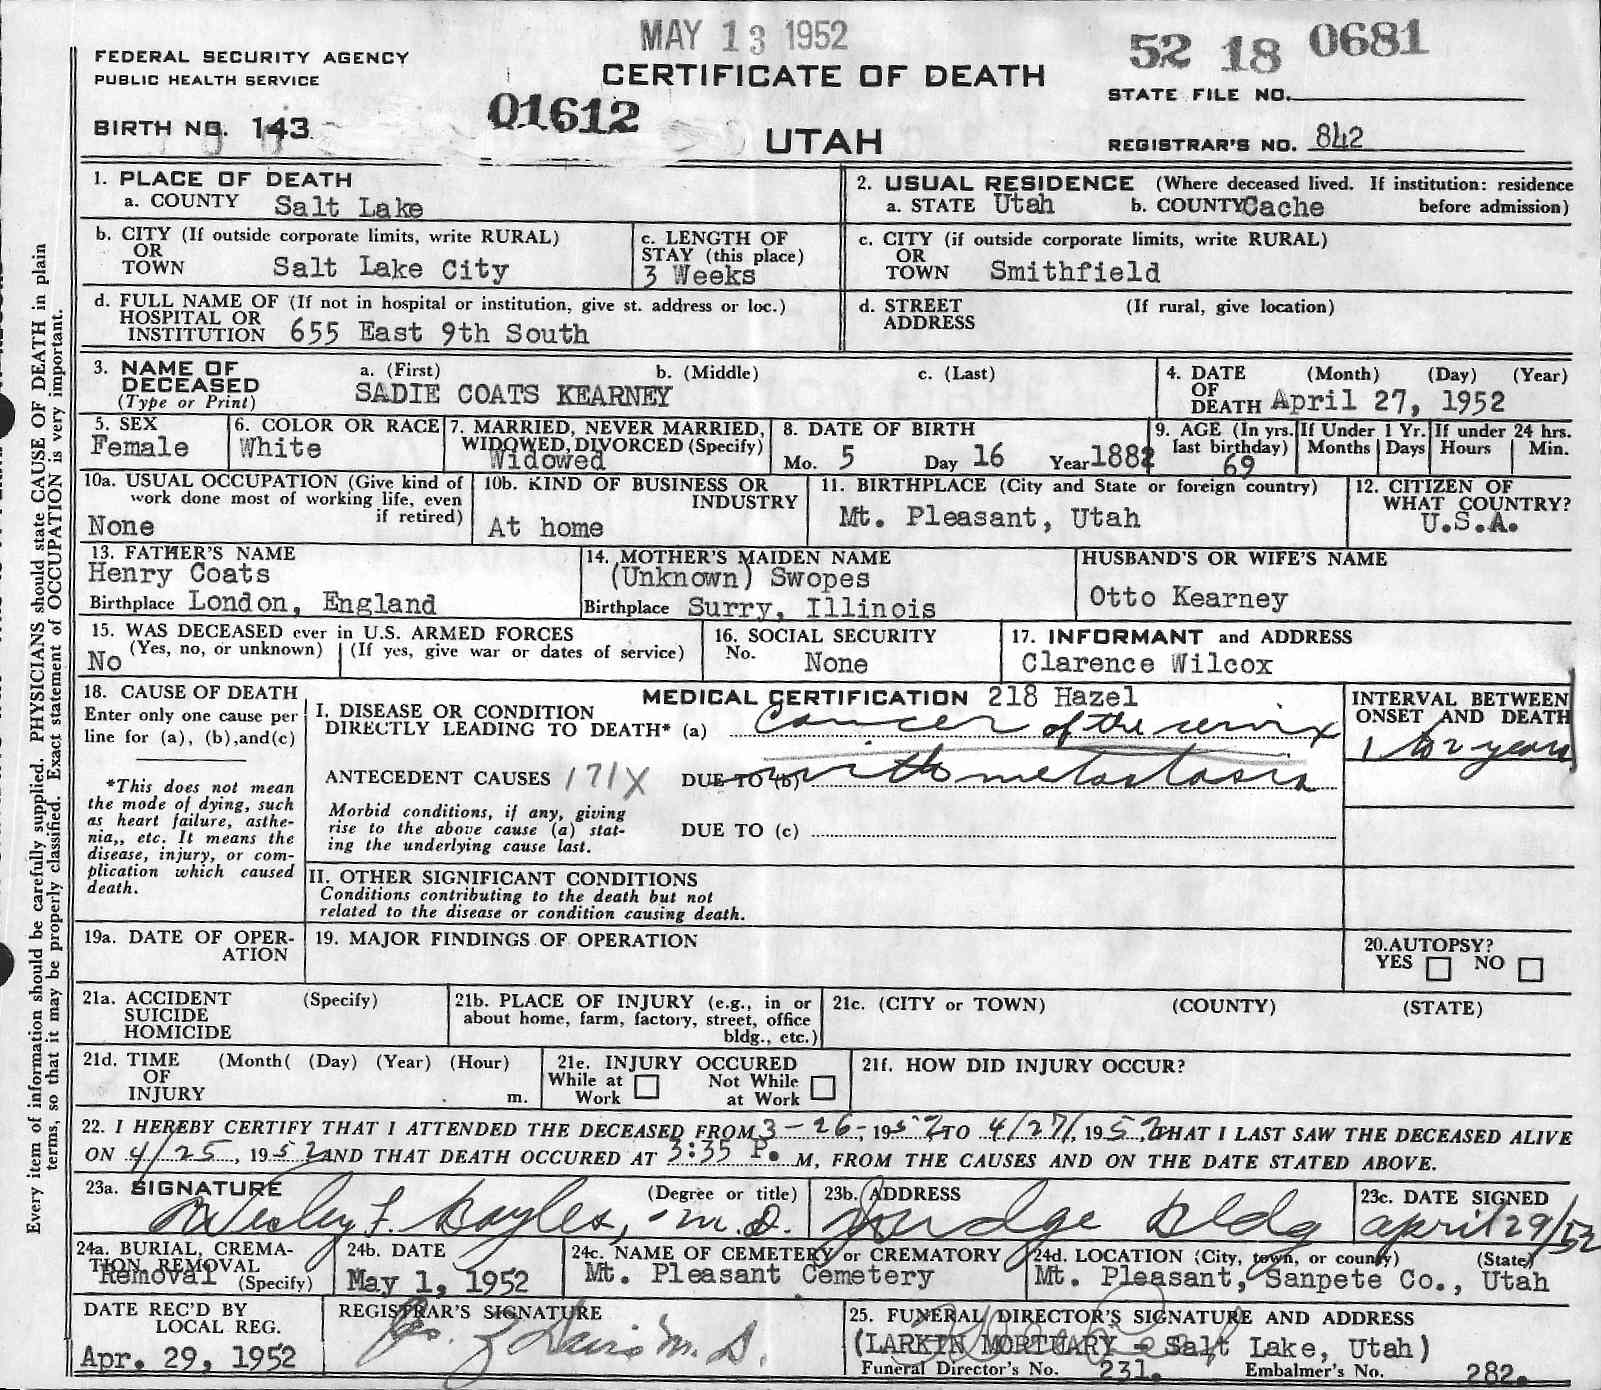 MAY 13 1952
52 18 0681
FEDERAL SECURITY AGENCY
PUBLIC HEALTH SERVICE
CERTIFICATE OF DEATH
STATE FILE NO.
BIRTH NO. 143
01612
UTAH
REGISTRAR'S NO. 842
Every item of information should be carefully supplied. PHYSICIANS should state CAUSE OF DEATH in plain
terms, so that it may be properly classified. Exact statement of OCCUPATION is very important.
1. PLACE OF DEATH
a. COUNTY Salt Lake
2. USUAL RESIDENCE (Where deceased lived. If institution: residence
a. STATE Utah b. COUNTY Cache before admission)
b. CITY (If outside corporate limits, write RURAL)
OR
TOWN Salt Lake City
c. LENGTH OF
STAY (this place)
3 Weeks
c. CITY (if outside corporate limits, write RURAL)
OR
TOWN Smithfield
d. FULL NAME OF (If not in hospital or institution, give st. address or loc.)
HOSPITAL OR
INSTITUTION 655 East 9th South
d. STREET (If rural, give location)
ADDRESS
3. NAME OF a. (First) b. (Middle) c. (Last)
DECEASED
(Type or Print) SADIE COATS KEARNEY
4. DATE (Month) (Day) (Year)
OF
DEATH April 27, 1952
5. SEX
Female
6. COLOR OR RACE
White
7. MARRIED, NEVER MARRIED,
WIDOWED, DIVORCED (Specify)
Widowed
8. DATE OF BIRTH
Mo. 5 Day 16 Year 1882
9. AGE (In yrs.
last birthday)
69
If Under 1 Yr.
Months Days
If under 24 hrs.
Hours Min.
10a. USUAL OCCUPATION (Give kind of
work done most of working life, even
if retired)
None
10b. KIND OF BUSINESS OR
INDUSTRY
At home
11. BIRTHPLACE (City and State or foreign country)
Mt. Pleasant, Utah
12. CITIZEN OF
WHAT COUNTRY?
U.S.A.
13. FATHER'S NAME
Henry Coats
Birthplace London, England
14. MOTHER'S MAIDEN NAME
(Unknown) Swopes
Birthplace Surry, Illinois
HUSBAND'S OR WIFE'S NAME
Otto Kearney
15. WAS DECEASED ever in U.S. ARMED FORCES
(Yes, no, or unknown) (If yes, give war or dates of service)
No
16. SOCIAL SECURITY
No. None
17. INFORMANT and ADDRESS
Clarence Wilcox
18. CAUSE OF DEATH
Enter only one cause per
line for (a), (b),and(c)
*This does not mean
the mode of dying, such
as heart failure, asthe-
nia,, etc. It means the
disease, injury, or com-
plication which caused
death.
MEDICAL CERTIFICATION 218 Hazel
I. DISEASE OR CONDITION
DIRECTLY LEADING TO DEATH* (a) Cancer of the cervix
ANTECEDENT CAUSES 171X DUE TO (b) with metastasis
Morbid conditions, if any, giving
rise to the above cause (a) stat-
ing the underlying cause last.
DUE TO (c)
INTERVAL BETWEEN
ONSET AND DEATH
1 to 2 years
II. OTHER SIGNIFICANT CONDITIONS
Conditions contributing to the death but not
related to the disease or condition causing death.
19a. DATE OF OPER-
ATION
19. MAJOR FINDINGS OF OPERATION
20.AUTOPSY?
YES NO
21a. ACCIDENT (Specify)
SUICIDE
HOMICIDE
21b. PLACE OF INJURY (e.g., in or
about home, farm, factory, street, office
bldg., etc.)
21c. (CITY or TOWN) (COUNTY) (STATE)
21d. TIME (Month( (Day) (Year) (Hour)
OF
INJURY m.
21e. INJURY OCCURED
While at Not While
Work at Work
21f. HOW DID INJURY OCCUR?
22. I HEREBY CERTIFY THAT I ATTENDED THE DECEASED FROM 3-26-, 1952 TO 4/27/, 1952, THAT I LAST SAW THE DECEASED ALIVE
ON 4/25, 1952 AND THAT DEATH OCCURED AT 3:35 P. M, FROM THE CAUSES AND ON THE DATE STATED ABOVE.
23a. SIGNATURE (Degree or title)
Wesley F. Bayles, M.D.
23b. ADDRESS
Judge Bldg
23c. DATE SIGNED
April 29/52
24a. BURIAL, CREMA-
TION, REMOVAL
Removal (Specify)
24b. DATE
May 1, 1952
24c. NAME OF CEMETERY or CREMATORY
Mt. Pleasant Cemetery
24d. LOCATION (City, town, or county) (State)
Mt. Pleasant, Sanpete Co., Utah
DATE REC'D BY
LOCAL REG.
Apr. 29, 1952
REGISTRAR'S SIGNATURE
Davis M.D.
25. FUNERAL DIRECTOR'S SIGNATURE AND ADDRESS
(LARKIN MORTUARY - Salt Lake, Utah)
Funeral Director's No. 231. Embalmer's No. 282.